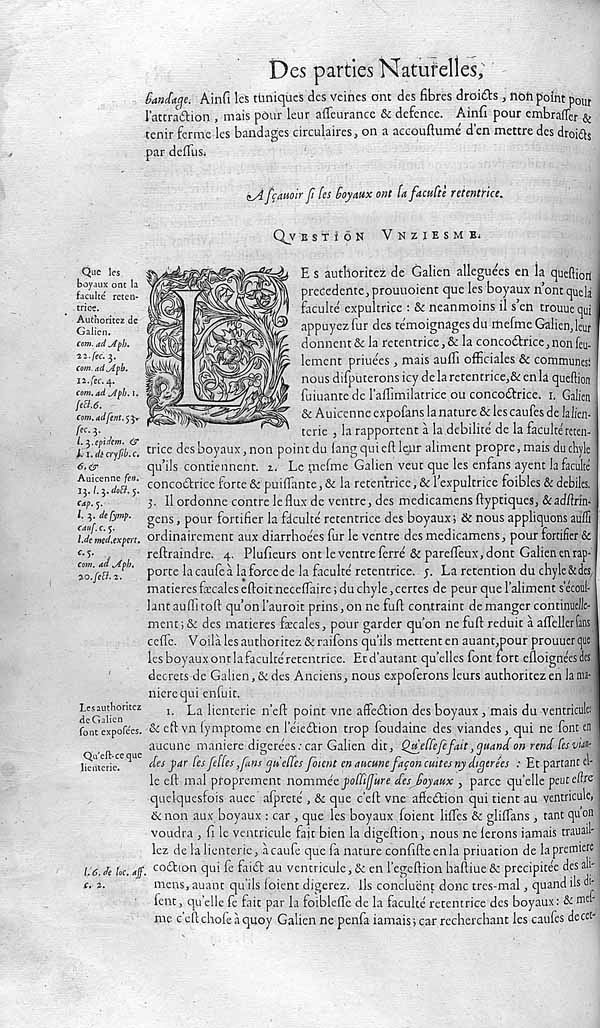 Des parties Naturelles,
bandage. Ainſi les tuniques des veines ont des fibres droicts, non point pour
l'attraction, mais pour leur aſſeurance & defence. Ainſi pour embraſſer &
tenir ferme les bandages circulaires, on a accouſtumé d'en mettre des droicts
par deſſus.
A ſçauoir ſi les boyaux ont la faculté retentrice.
QVESTION VNZIESME.
Que les
boyaux ont la
faculté reten-
trice.
Authoritez de
Galien.
com. ad Aph.
22. ſec. 3.
com. ad Aph.
12. ſec. 4.
com. ad Aph. 1.
ſect. 6.
com. ad ſent. 53.
ſec. 3.
l. 3. epidem. &
l. 1. de cryſib. c.
6. &
Auicenne fen.
13. l. 3. doct. 5.
cap. 5.
l. 3. de ſymp.
cauſ. c. 5.
l. de med. expert.
c. 5.
com. ad Aph.
20. ſect. 2.
LEs authoritez de Galien alleguées en la queſtion
precedente, prouuoient que les boyaux n'ont que la
faculté expultrice : & neanmoins il s'en trouue qui
appuyez ſur des témoignages du meſme Galien, leur
donnent & la retentrice, & la concoctrice, non ſeu-
lement priuées, mais auſſi officiales & communes:
nous diſputerons icy de la retentrice, & en la queſtion
ſuiuante de l'aſſimilatrice ou concoctrice. 1. Galien
& Auicenne expoſans la nature & les cauſes de la lien-
terie, la rapportent à la debilité de la faculté reten-
trice des boyaux, non point du ſang qui eſt leur aliment propre, mais du chyle
qu'ils contiennent. 2. Le meſme Galien veut que les enfans ayent la faculté
concoctrice forte & puiſſante, & la retentrice, & l'expultrice foibles & debiles.
3. Il ordonne contre le flux de ventre, des medicamens ſtyptiques, & adſtrin-
gens, pour fortifier la faculté retentrice des boyaux; & nous appliquons auſſi
ordinairement aux diarrhoées ſur le ventre des medicamens, pour fortifier &
reſtraindre. 4. Pluſieurs ont le ventre ſerré & pareſſeux, dont Galien en rap-
porte la cauſe à la force de la faculté retentrice. 5. La retention du chyle & des
matieres fæcales eſtoit neceſſaire; du chyle, certes de peur que l'aliment s'écoul-
lant auſſi toſt qu'on l'auroit prins, on ne fuſt contraint de manger continuelle-
ment; & des matieres fæcales, pour garder qu'on ne fuſt reduit à aſſeller ſans
ceſſe. Voilà les authoritez & raiſons qu'ils mettent en auant, pour prouuer que
les boyaux ont la faculté retentrice. Et d'autant qu'elles ſont fort eſloignées des
decrets de Galien, & des Anciens, nous expoſerons leurs authoritez en la ma-
niere qui enſuit.
Les authoritez
de Galien
ſont expoſées.
Qu'eſt-ce que
lienterie.
1. La lienterie n'eſt point vne affection des boyaux, mais du ventricule;
& eſt vn ſymptome en l'éiection trop ſoudaine des viandes, qui ne ſont en
aucune maniere digerées: car Galien dit, Qu'elle ſe fait, quand on rend les vian-
des par les ſelles, ſans qu'elles ſoient en aucune façon cuites ny digerées : Et partant el-
le eſt mal proprement nommée polliſſure des boyaux, parce qu'elle peut eſtre
quelquesfois auec aſpreté, & que c'eſt vne affection qui tient au ventricule,
& non aux boyaux: car, que les boyaux ſoient liſſes & gliſſans, tant qu'on
voudra, ſi le ventricule fait bien la digeſtion, nous ne ſerons iamais trauail-
lez de la lienterie, à cauſe que ſa nature conſiſte en la priuation de la premiere
l. 6. de loc. aff.
c. 2.
coction qui ſe faict au ventricule, & en l'egeſtion haſtiue & precipitée des ali-
mens, auant qu'ils ſoient digerez. Ils concluënt donc tres-mal, quand ils di-
ſent, qu'elle ſe fait par la foibleſſe de la faculté retentrice des boyaux: & meſ-
me c'eſt choſe à quoy Galien ne penſa iamais; car recherchant les cauſes de cet-